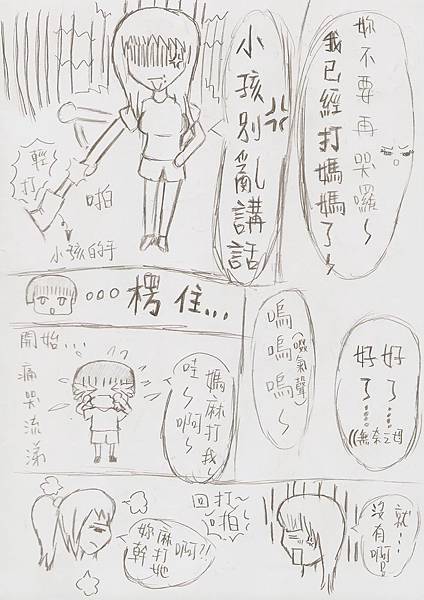 妳不要再哭囉～
我已經打媽媽了～
小孩別亂講話
輕打
啪
小孩的手
楞住...
好了……
好了……
((無奈之母
嗚嗚嗚～
(啜氣聲)
媽麻打我～
哇～啊～
開始...
痛哭流涕
就...
沒有啊!!
回打~
啪
妳麻啊?!
幹打她